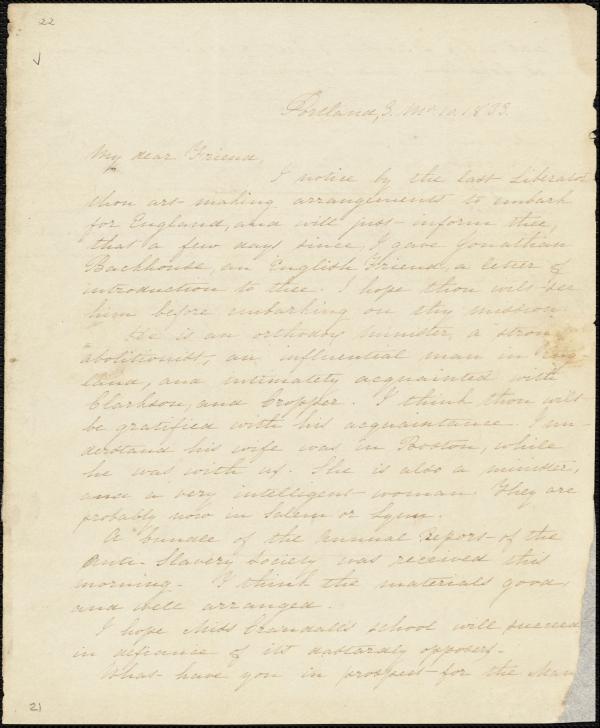 22
Portland, 3. Mo. 10. 1833.
My dear Friend,
I notice by the last Liberator
thou art making arrangements to embark
for England, and will just inform thee,
that a few days since, I gave Jonathan
Backhouse, an English Friend, a letter of
introduction to thee. I hope thou wilt see
him before embarking on thy mission.
He is an orthodox minister, a strong
abolitionist, an influential man in Eng-
land, and intimately acquainted with
Clarkson, and Cropper. I think thou wilt
be gratified with his acquaintance. I un-
derstand his wife was in Boston, while
he was with us. She is also a minister,
and a very intelligent woman. They are
probably now in Salem or Lynn.
A bundle of the Annual Report of the
Anti-Slavery Society was received this
morning. I think the materials good,
and well arranged.
I hope Miss Crandall's school will succeed
in defiance of its dastardly opposers.
What have you in prospect for the Man
21